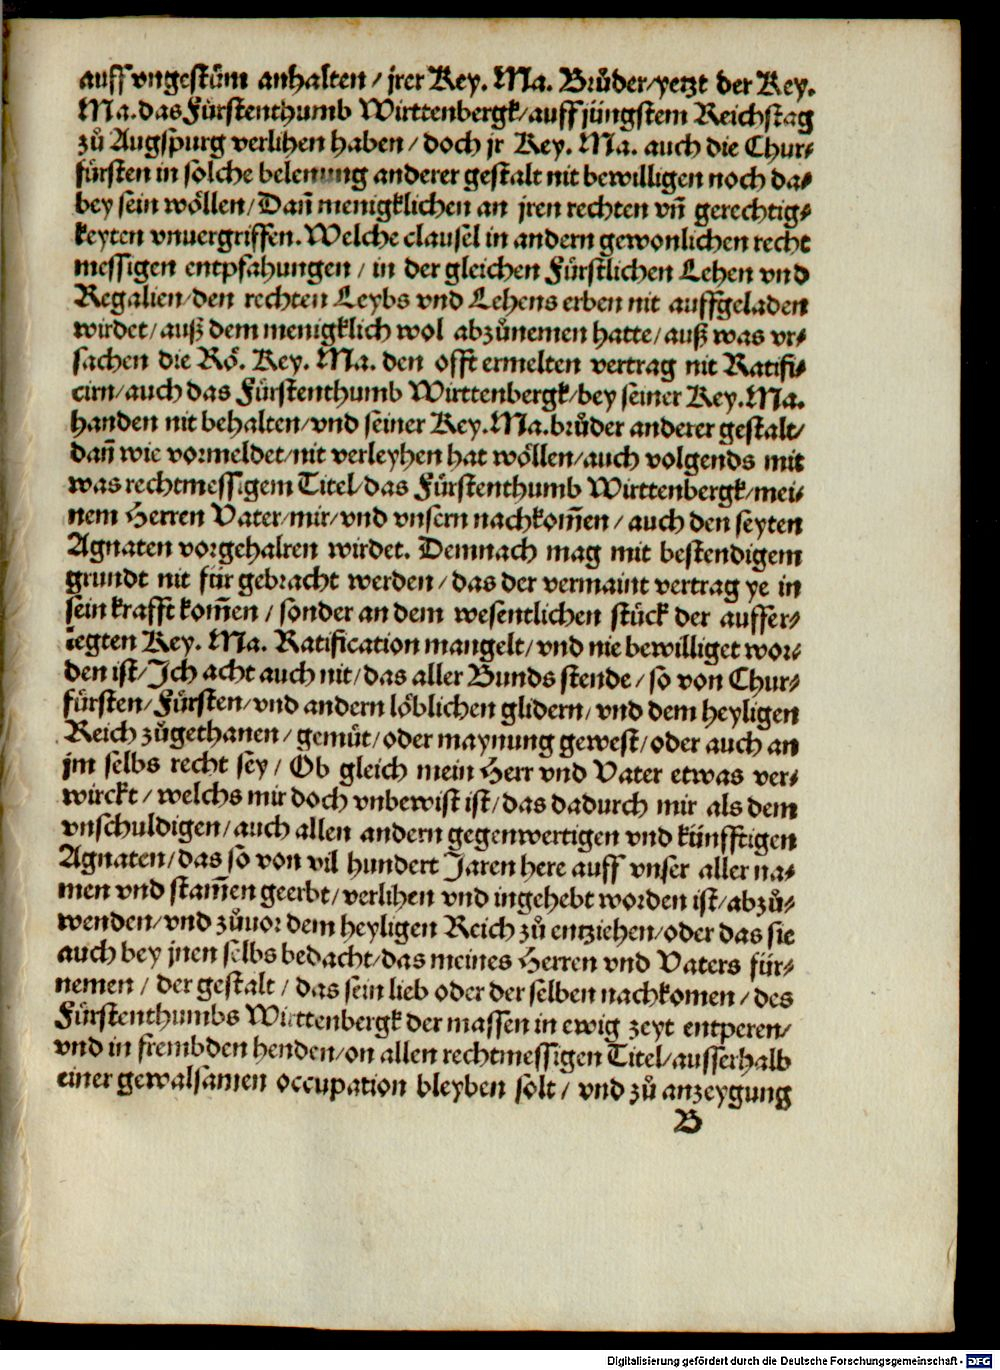 auff vngestům anhalten / jrer Key. Ma. Brůder/yetzt der Key.
Ma. das Fürstenthumb Wirttenbergk/auff jüngstem Reichstag
zů Augspurg verlihen haben / doch jr Key. Ma. auch die Chur⸗
fürsten in solche belenung anderer gestalt nit bewilligen noch da⸗
bey sein wöllen/Dañ menigklichen an jren rechten vñ gerechtig⸗
keyten vnuergriffen. Welche clausel in andern gewonlichen recht
messigen entpfahungen / in der gleichen Fürstlichen Lehen vnd
Regalien/den rechten Leybs vnd Lehens erben nit auffgeladen
wirdet/auß dem menigklich wol abzůnemen hatte/auß was vr⸗
sachen die Rö. Key. Ma. den offt ermelten vertrag nit Ratifi⸗
cirn/auch das Fürstenthumb Wirttenbergk/bey seiner Key. Ma.
handen nit behalten/vnd seiner Key. Ma. brůder anderer gestalt/
dañ wie vormeldet/nit verleyhen hat wöllen/auch volgends mit
was rechtmessigem Titel/das Fürstenthumb Wirttenbergk/mei⸗
nem Herren Vater/mir/vnd vnsern nachkom̃en / auch den seyten
Agnaten vorgehalten wirdet. Demnach mag mit bestendigem
grundt nit für gebracht werden / das der vermaint vertrag ye in
sein krafft kom̃en / sonder an dem wesentlichen stück der auffer⸗
legten Key. Ma. Ratification mangelt/vnd nie bewilliget wor⸗
den ist/Ich acht auch nit/das aller Bunds stende / so von Chur⸗
fürsten/Fürsten/vnd andern löblichen glidern/vnd dem heyligen
Reich zůgethanen / gemüt/oder maynung gewest/oder auch an
jm selbs recht sey / Ob gleich mein Herr vnd Vater etwas ver⸗
wirckt / welchs mir doch vnbewist ist/das dadurch mir als dem
vnschuldigen/auch allen andern gegenwertigen vnd künfftigen
Agnaten/das so von vil hundert Jaren here auff vnser aller na⸗
men vnd stam̃en geerbt/verlihen vnd ingehebt worden ist/abzů⸗
wenden/vnd zůuor dem heyligen Reich zů entziehen/oder das sie
auch bey jnen selbs bedacht/das meines Herren vnd Vaters für⸗
nemen / der gestalt / das sein lieb oder der selben nachkomen / des
Fürstenthumbs Wirttenbergk der massen in ewig zeyt entperen/
vnd in frembden henden/on allen rechtmessigen Titel/ausserhalb
einer gewalsamen occupation bleyben solt / vnd zů anzeygung
B
Digitalisierung gefördert durch die Deutsche Forschungsgemeinschaft - DFG